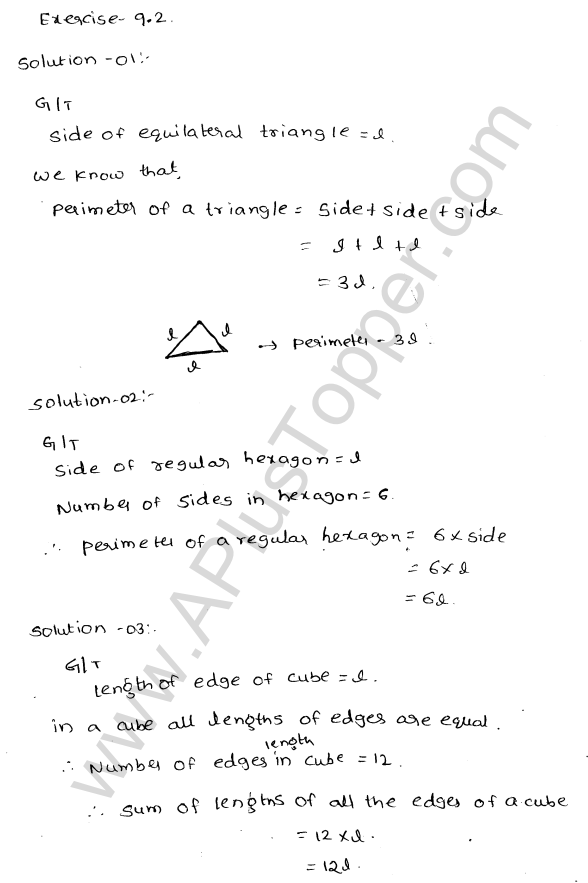 Exercise- 9.2.
Solution -01:-
G/T
side of equilateral triangle = l.
we know that,
perimeter of a triangle = side + side + side
= l + l + l
= 3l.
l l → perimeter - 3l.
l
Solution-02:-
G/T
Side of regular hexagon = l
Number of sides in hexagon = 6.
∴ perimeter of a regular hexagon = 6 × side
= 6 × l
= 6l.
Solution -03:-
G/T
length of edge of cube = l.
in a cube all lengths of edges are equal.
length
∴ Number of edges in cube = 12.
∴ sum of lengths of all the edges of a cube
= 12 × l.
= 12l.
www.APlusTopper.com